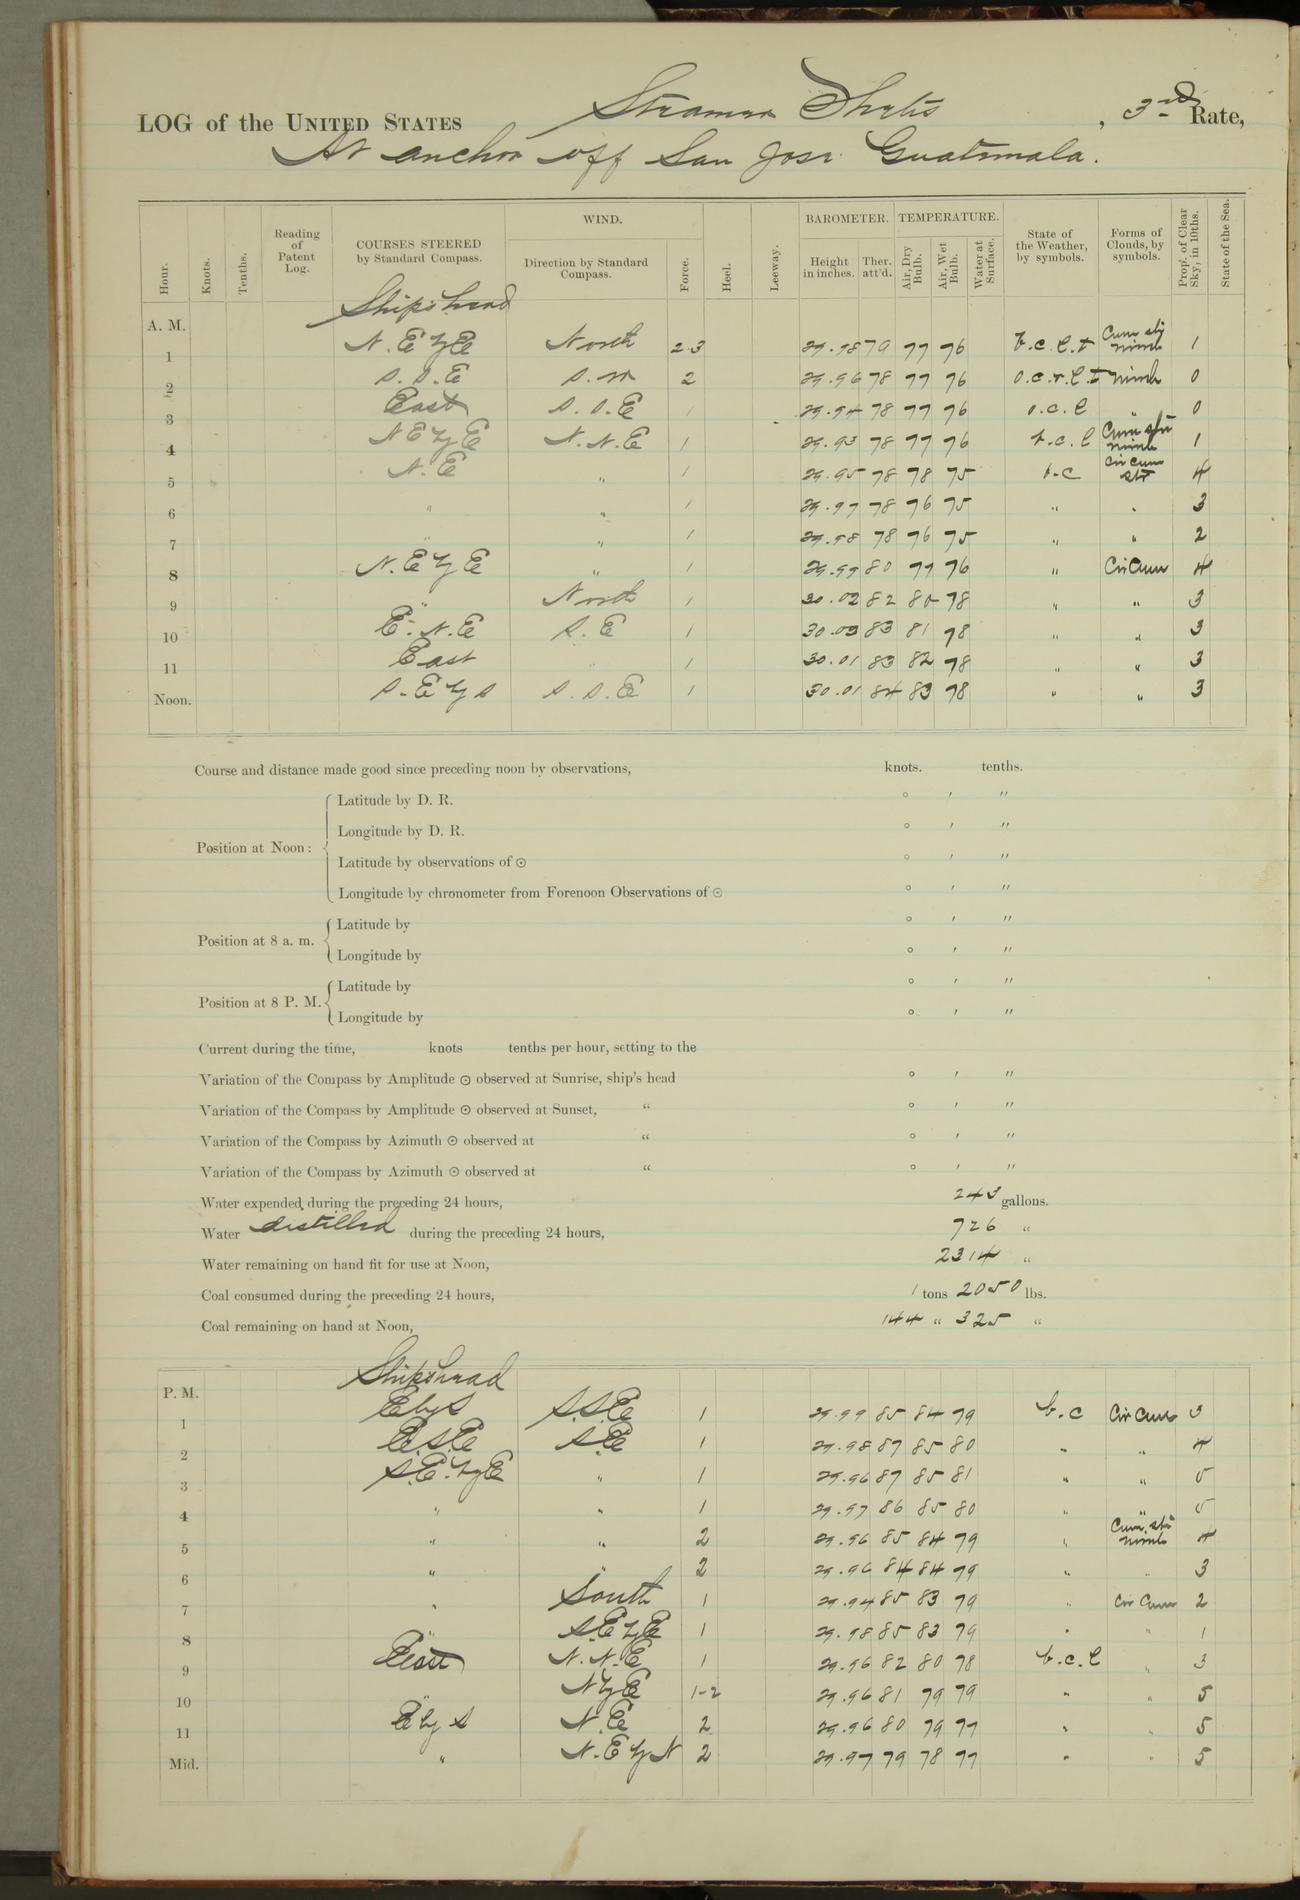 LOG of the UNITED STATES Steamer Thetis, 3rd Rate,
At anchor off San Jose Guatemala.
Hour. Knots. Tenths. Reading of Patent Log. COURSES STEERED by Standard Compass. WIND. Direction by Standard Compass. Force. Heel. Leeway. BAROMETER. Height in inches. Ther. att'd. TEMPERATURE. Air, Dry Bulb. Air, Wet Bulb. Water at Surface. State of the Weather, by symbols. Forms of Clouds, by symbols. Prop. of Clear Sky, in 10ths. State of the Sea.
A. M. Ship's head
1 N.E y E North 2-3 29.98 79 77 76 b.c.l.t Cum str nimb 1
2 S.S.E S.W 2 29.96 78 77 76 o.c.r.l.t nimb 0
3 East S.S.E 1 29.94 78 77 76 o.c.l " 0
4 N E y E N.N.E 1 29.93 78 77 76 b.c.l Cum str nimb 1
5 N.E " 1 29.95 78 78 75 b.c Cir cum str 4
6 " " 1 29.97 78 76 75 " " 3
7 " " 1 29.98 78 76 75 " " 2
8 N.E y E " 1 29.99 80 77 76 " Cir Cum 4
9 " North 1 30.02 82 80 78 " " 3
10 E.N.E S.E 1 30.03 83 81 78 " " 3
11 East " 1 30.01 83 82 78 " " 3
Noon. S.E y S S.S.E 1 30.01 84 83 78 " " 3
Course and distance made good since preceding noon by observations, knots. tenths.
Position at Noon: Latitude by D. R. ° ′ ″
Longitude by D. R. ° ′ ″
Latitude by observations of ☉ ° ′ ″
Longitude by chronometer from Forenoon Observations of ☉ ° ′ ″
Position at 8 a. m. Latitude by ° ′ ″
Longitude by ° ′ ″
Position at 8 P. M. Latitude by ° ′ ″
Longitude by ° ′ ″
Current during the time, knots tenths per hour, setting to the
Variation of the Compass by Amplitude ☉ observed at Sunrise, ship's head ° ′ ″
Variation of the Compass by Amplitude ☉ observed at Sunset, " ° ′ ″
Variation of the Compass by Azimuth ☉ observed at " ° ′ ″
Variation of the Compass by Azimuth ☉ observed at " ° ′ ″
Water expended during the preceding 24 hours, 243 gallons.
Water distilled during the preceding 24 hours, 726 "
Water remaining on hand fit for use at Noon, 2314 "
Coal consumed during the preceding 24 hours, 1 tons 2050 lbs.
Coal remaining on hand at Noon, 144 " 325 "
P. M. Ship's head
1 E by S S.S.E 1 29.99 85 84 79 b.c Cir Cum 3
2 E.S.E S.E 1 29.98 87 85 80 " " 4
3 S.E. y E " 1 29.96 87 85 81 " " 5
4 " " 1 29.97 86 85 80 " " 5
5 " " 2 29.96 85 84 79 " Cum. str nimb 4
6 " " 2 29.96 84 84 79 " " 3
7 " South 1 29.94 85 83 79 " Cir Cum 2
8 " S.E y E 1 29.98 85 83 79 " " 1
9 East N.N.E 1 29.96 82 80 78 b.c.l " 3
10 " N y E 1-2 29.96 81 79 79 " " 5
11 E by S N.E 2 29.96 80 79 77 " " 5
Mid. " N.E y N 2 29.97 79 78 77 " " 5